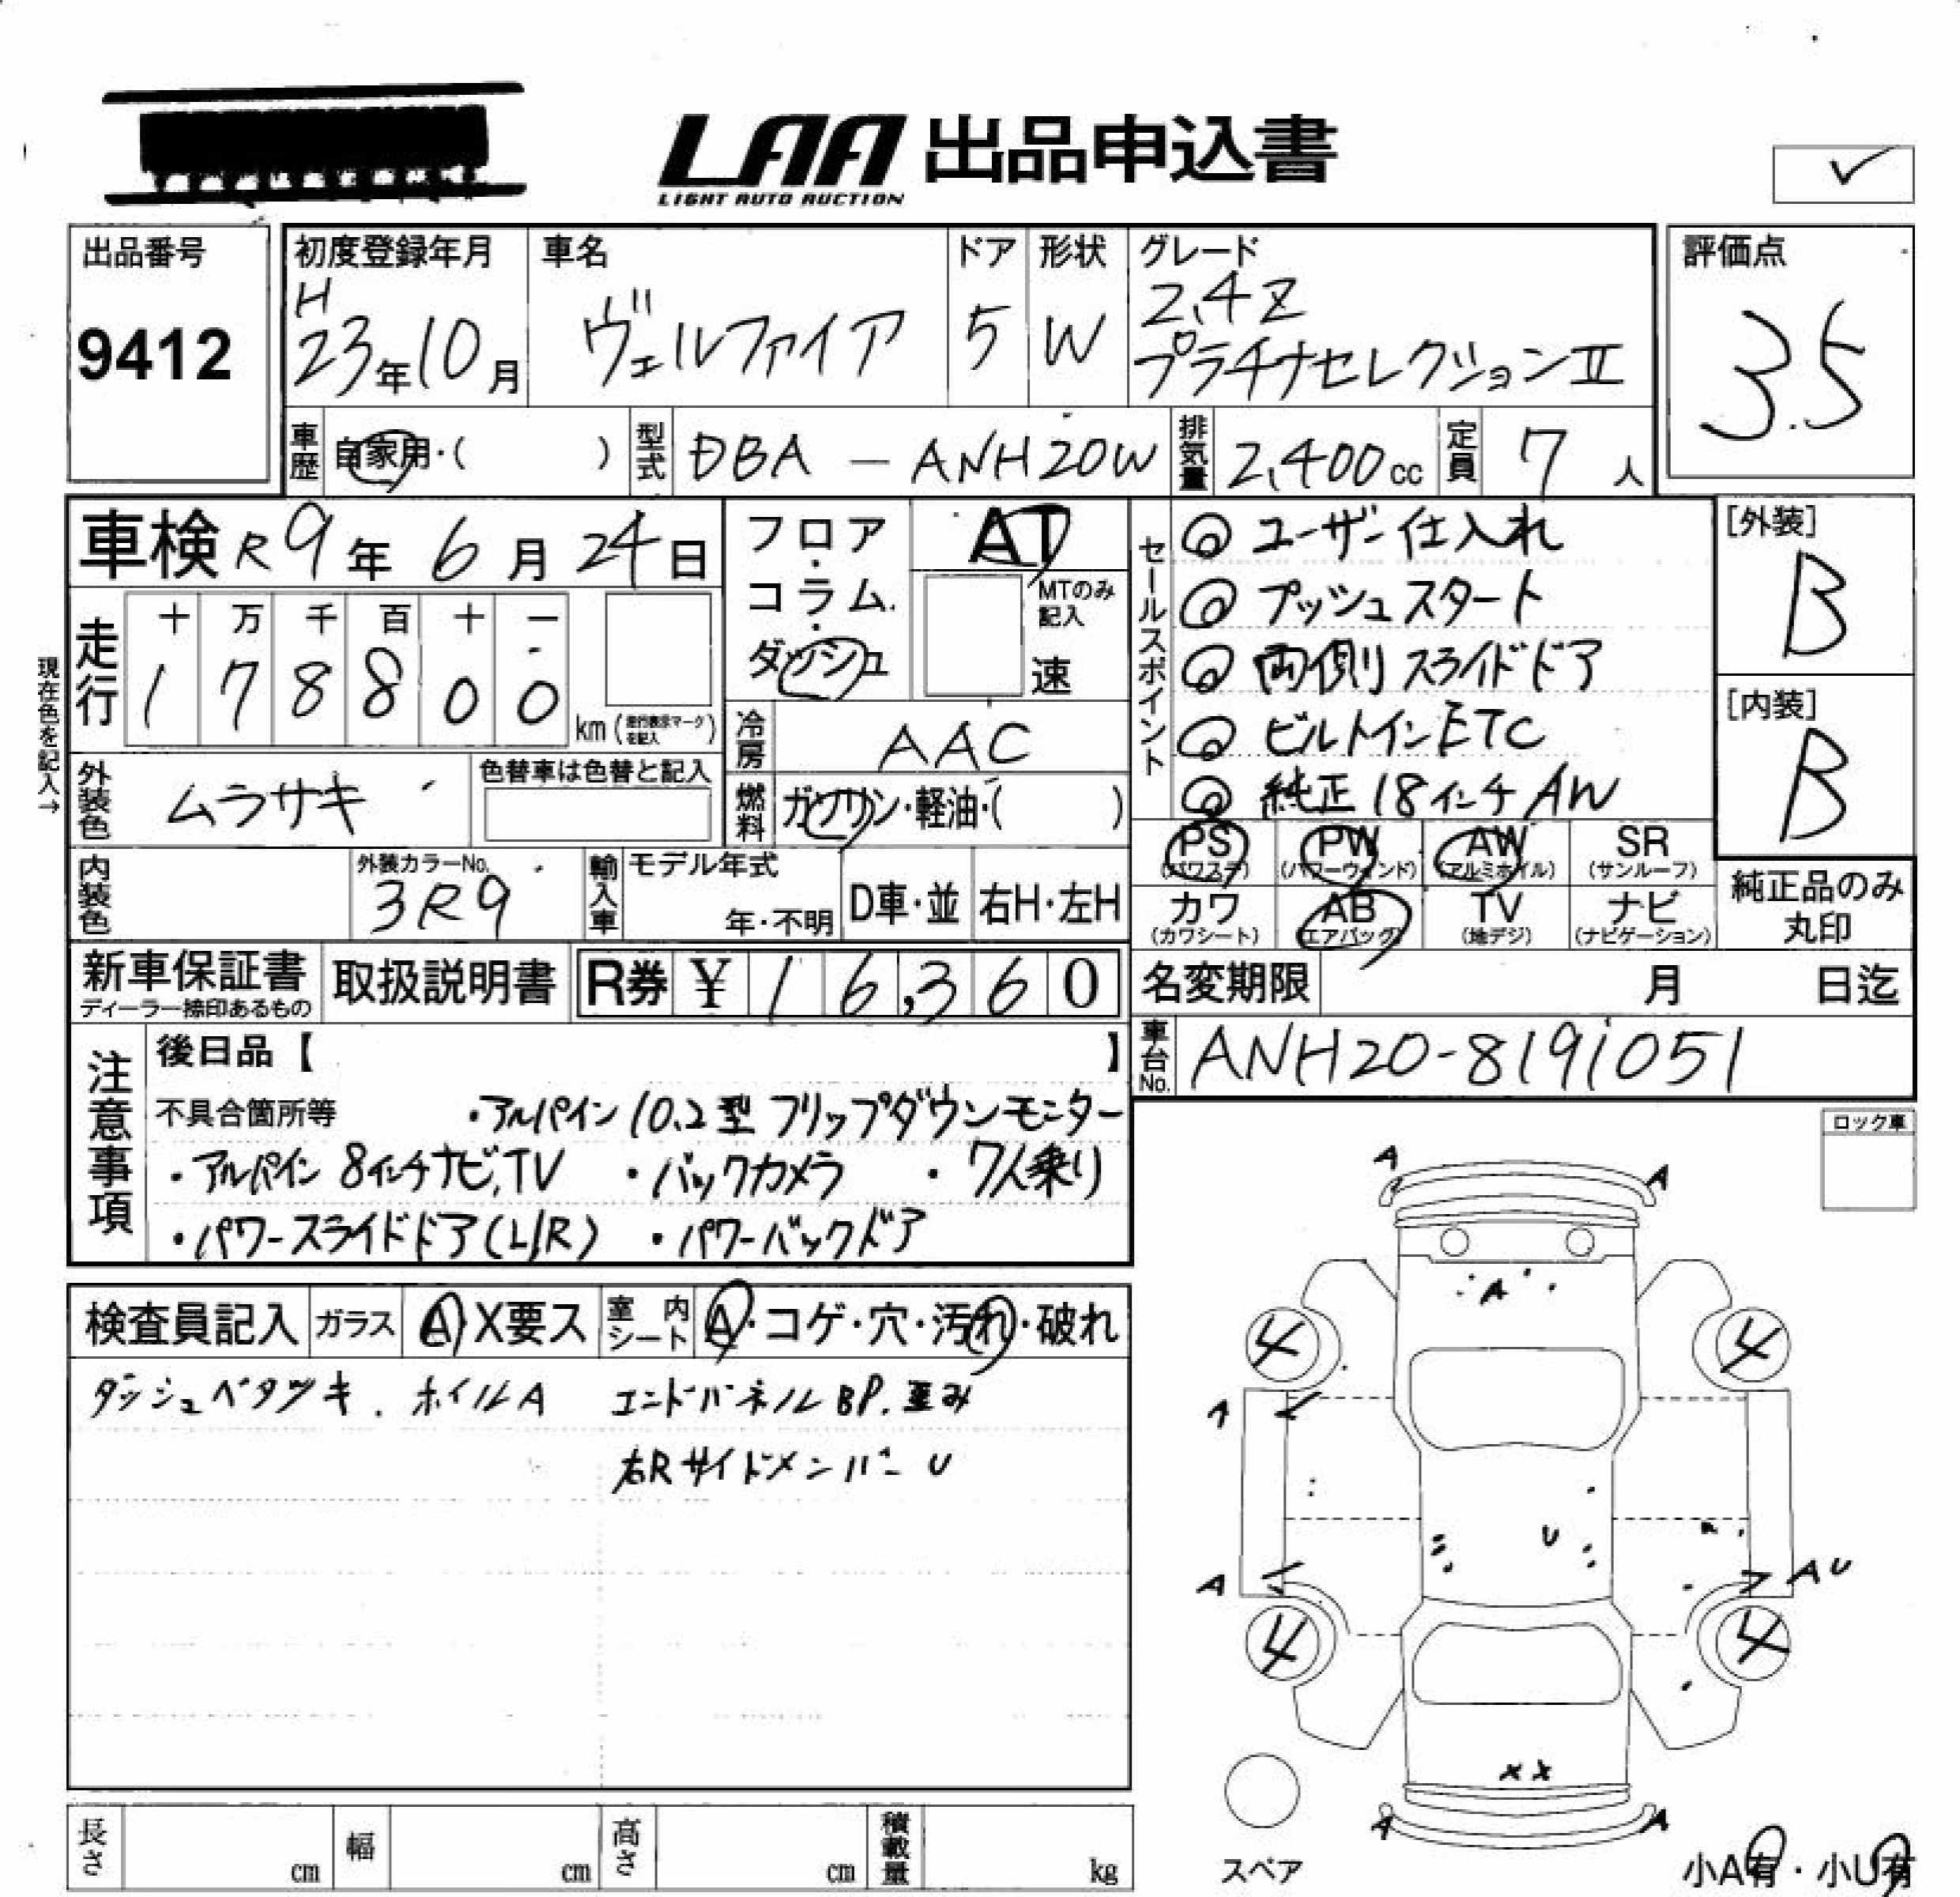 LAA 出品申込書
LIGHT AUTO AUCTION
出品番号
9412
初度登録年月
H
23年10月
車名
ヴェルファイア
ドア
5
形状
W
グレード
2.4Z
プラチナセレクションⅡ
評価点
3.5
車歴 自家用・( )
型式 DBA — ANH20W
排気量 2,400cc
定員 7人
車検 R9年6月24日
フロア・コラム・ダッシュ
AT
MTのみ記入
速
セールスポイント
◎ ユーザー仕入れ
◎ プッシュスタート
◎ 両側スライドドア
◎ ビルトインETC
◎ 純正18インチAW
[外装]
B
[内装]
B
現在色を記入→
走行
十 万 千 百 十 一
1 7 8 8 0 0
km (走行表示マークを記入)
冷房 AAC
外装色 ムラサキ
色替車は色替と記入
燃料 ガソリン・軽油・( )
PS (パワステ)
PW (パワーウィンド)
AW (アルミホイル)
SR (サンルーフ)
内装色
外装カラーNo.
3R9
輸入車
モデル年式
年・不明
D車・並
右H・左H
カワ (カワシート)
AB (エアバッグ)
TV (地デジ)
ナビ (ナビゲーション)
純正品のみ丸印
新車保証書
ディーラー捺印あるもの
取扱説明書
R券 ¥ 16,360
名変期限 月 日迄
車台No. ANH20-8191051
注意事項
後日品【 】
不具合箇所等 ・アルパイン10.2型フリップダウンモニター
・アルパイン 8インチナビ,TV ・バックカメラ ・7人乗り
・パワースライドドア(L/R) ・パワーバックドア
ロック車
検査員記入
ガラス A X要ス
室内シート A・コゲ・穴・汚れ・破れ
ダッシュベタツキ. ホイルA エンドパネルBP.歪み
右Rサイドメンバー U
A A
A
4 4
A
U
A AU
4 4
X X
A A
スペア
小A有・小U有
長さ cm
幅 cm
高さ cm
積載量 kg